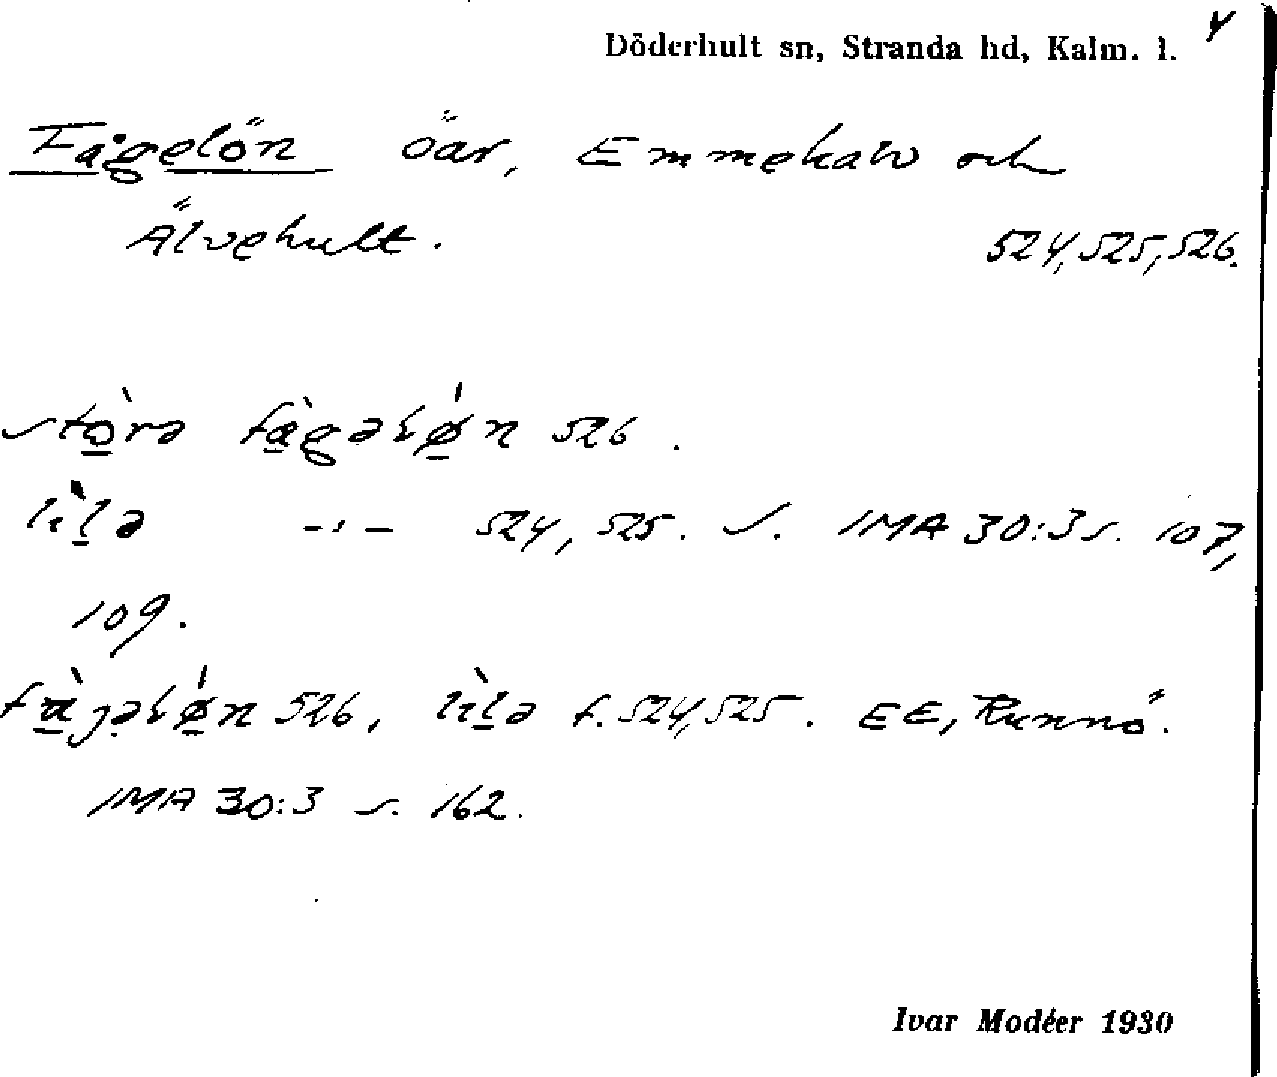 Döderhult sn, Stranda hd, Kalm. l. 4
Fågelön öar, Emmekalv och
Älvehult. 524, 525, 526.
stò̲rə fà̲gəlǿ̲n 526.
lìl̲ə -"- 524, 525. S. IMA 30:3 s. 107,
109.
fà̲gəlǿ̲n 526, lìl̲ə f. 524, 525. EE, Runnö.
IMA 30:3 s. 162.
Ivar Modéer 1930